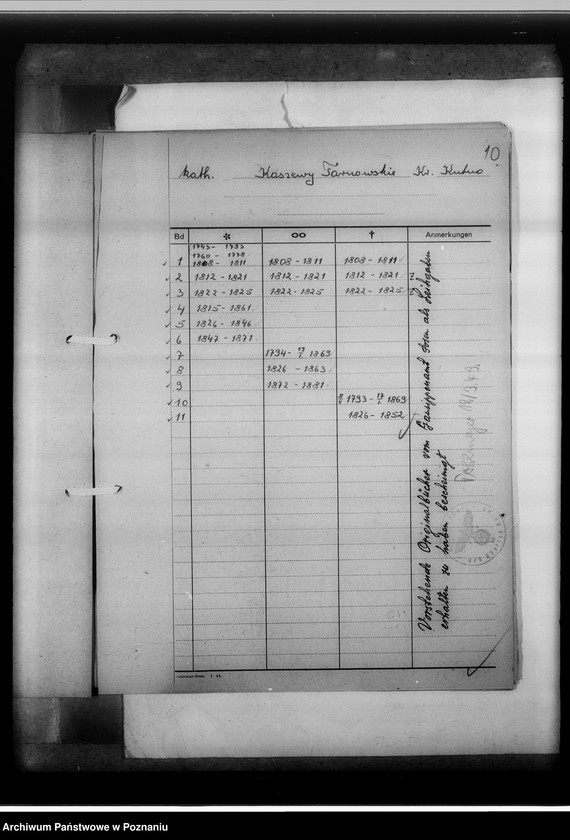 10
kath. Kaszewy Tarnowskie Kr. Kutno
Bd * ∞ † Anmerkungen
1743 - 1793
1760 - 1778
1 1808 - 1811 1808 - 1811 1808 - 1811
2 1812 - 1821 1812 - 1821 1812 - 1821
3 1822 - 1825 1822 - 1825 1822 - 1825
4 1815 - 1861
5 1826 - 1846
6 1847 - 1871
7 1794 - 1863
8 1826 - 1863
9 1872 - 1881
10 1793 - 1869
11 1826 - 1852
Vorstehende Originalbücher vom Gausippenamt Posen als Leihgaben
erhalten zu haben bescheinigt
Archiwum Państwowe w Poznaniu